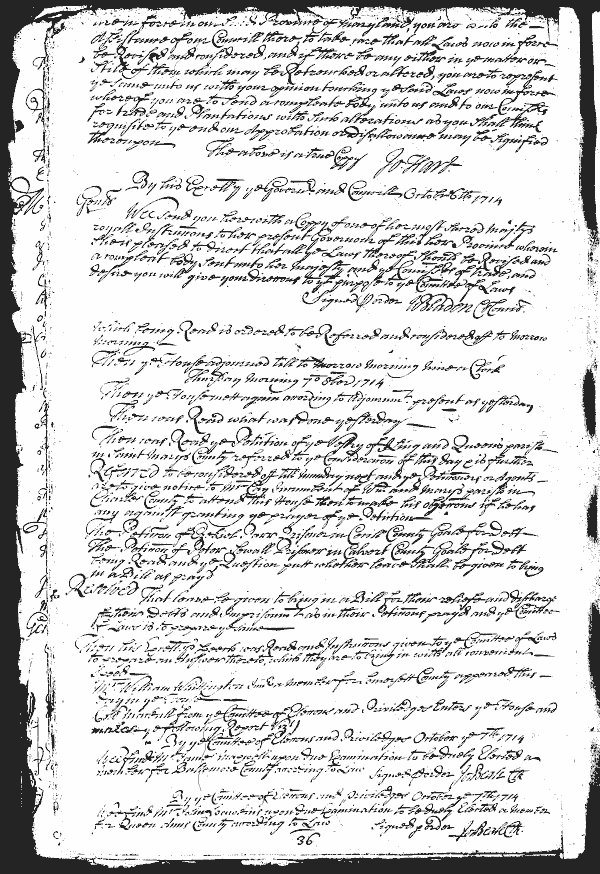 are in force in our said Province of Maryland, you are with the
Assistance of our Councill there to take care that all Laws now in force
be Revised and considered, and if there be any either in ye mater or
Stile of them which may be Retrenched or altered, you are to represent
ye same unto us with your opinion touching ye said Laws now in force
whereof you are to send a compleate body unto us and to our
for trade and Plantations with such alterations as you shall think
requisite to ye end our Approbation or disallowance may be signified
thereupon
The above is a true Copy Jo Hart.
By his Excellcy ye Governr and Councill October 6th 1714
Gents
Wee send you herewith a Coppy of one of her most Sacred Majtys
royall Instructions to her present Governour of this her Province wherein
shee is pleased to direct that all ye Laws thereof should be Revised and
a compleat body sent unto her Majesty and ye of trade and
desire you will give your directions to yt purpose to ye Comittee of Laws
Signed p order W Bladen Cl Concil.
Which being Read is ordered to be Referred and considered off to morrow
morning
Then ye House adjourned till to morrow morning nine a Clock
Thursday Morning 7o 8ber 1714
Then ye House mett again according to Adjournmt. present as yesterday
Then was Read what was done yesterday
Then was Read ye Petition of ye Vestry of King and Queens parish
in Saint Marys County referred to ye Consideration of this day is further
Referred to be considered off till Munday next and ye Petitioners or Agents
are to give notice to Mr Incumbent of Wm and Marys parish in
Charles County to attend this House then to make his objections if he has
any against granting ye prayer of ye Petition
The Petition of Ezekiel Parr Prisoner in Cecill County Goale for debt
The Petition of Peter Sewall Prisoner in Calvert County Goale for debt
being Read and ye Question put whether leave shall be given to bring
in a Bill as prayd
Resolved That leave be given to bring in a Bill for their reliefe and discharge
of their debts and Imprisonmt as in their Petitions prayd and ye Comittee
of Laws is to prepare ye same
Then his Excellcys Speech was Read and Instructions given to ye Comittee of Laws
to prepare an Answer thereto, which they are to bring in with all convenient
speed
Mr William Whittington a member for Somersett County appeared this
day in ye House
Coll Mackall from ye Comittee of Elections and Priviledges Enters ye House and
makes ye following Report vizt
By ye Comittee of Elections and Priviledges October ye 7th 1714
Wee find Mr upon due Examination to be duely Elected a
member for Baltemore County according to Law Signed p order Jo Beale Clk
By ye Comittee of Elections and Priviledges October ye 7th 1714
Wee find Mr John upon due Examination to be duely Elected a member
for Queen Anns County according to Law Signed p order Jo Beale Clk.
36